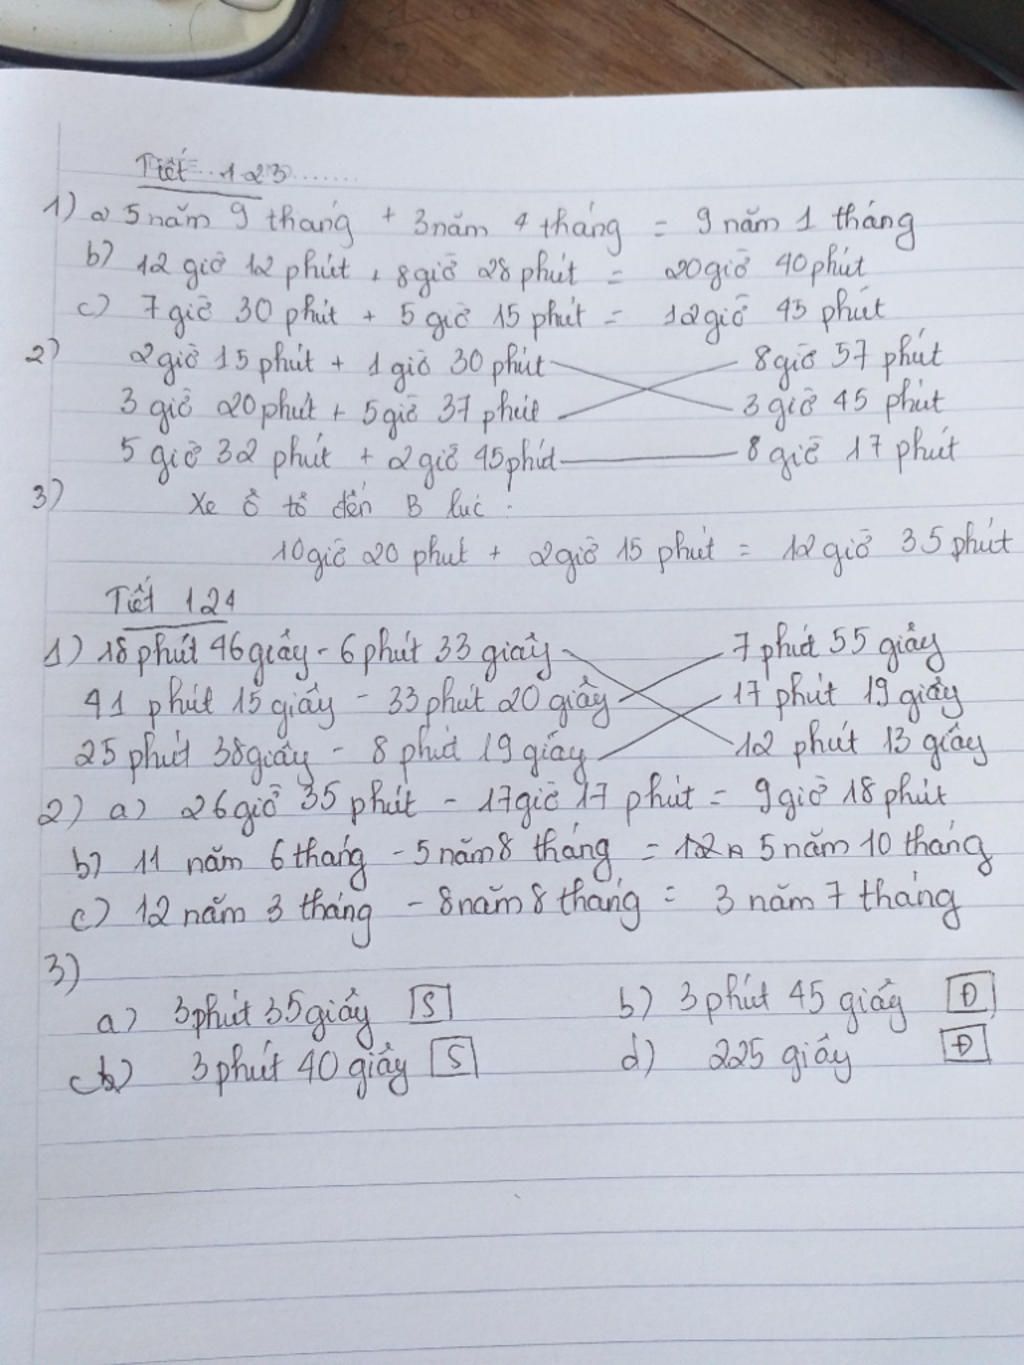 Tiết 123
1) a) 5 năm 9 tháng + 3 năm 4 tháng = 9 năm 1 tháng
b) 12 giờ 12 phút + 8 giờ 28 phút = 20 giờ 40 phút
c) 7 giờ 30 phút + 5 giờ 15 phút = 12 giờ 45 phút
2) 2 giờ 15 phút + 1 giờ 30 phút 8 giờ 57 phút
3 giờ 20 phút + 5 giờ 37 phút 3 giờ 45 phút
5 giờ 32 phút + 2 giờ 45 phút 8 giờ 17 phút
3) Xe ô tô đến B lúc :
10 giờ 20 phút + 2 giờ 15 phút = 12 giờ 35 phút
Tiết 124
1) 18 phút 46 giây - 6 phút 33 giây 7 phút 55 giây
41 phút 15 giây - 33 phút 20 giây 17 phút 19 giây
25 phút 38 giây - 8 phút 19 giây 12 phút 13 giây
2) a) 26 giờ 35 phút - 17 giờ 17 phút = 9 giờ 18 phút
b) 11 năm 6 tháng - 5 năm 8 tháng = 5 năm 10 tháng
c) 12 năm 3 tháng - 8 năm 8 tháng = 3 năm 7 tháng
3)
a) 3 phút 35 giây S b) 3 phút 45 giây Đ
c) 3 phút 40 giây S d) 225 giây Đ